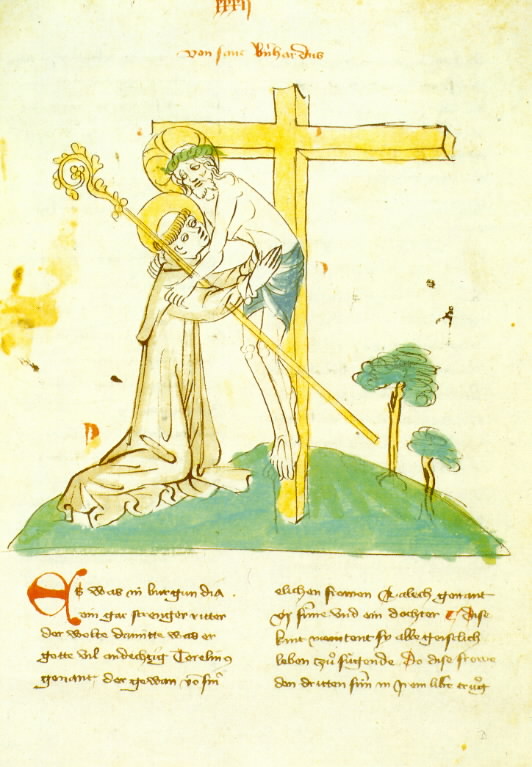 von sant Bernhardus
Es was in burgundia
ein gar strenger ritter
der welte damitte was er
gotte vil andechtig Tecelinus
genant der gewan von siner
elichen frowen Aalech genant
vj süne vnd ein dochter Dise
kint meintent sy alle geistlich
leben zuͦ fuͤgende Do dise frowe
den dritten sun in irem libe truͦg